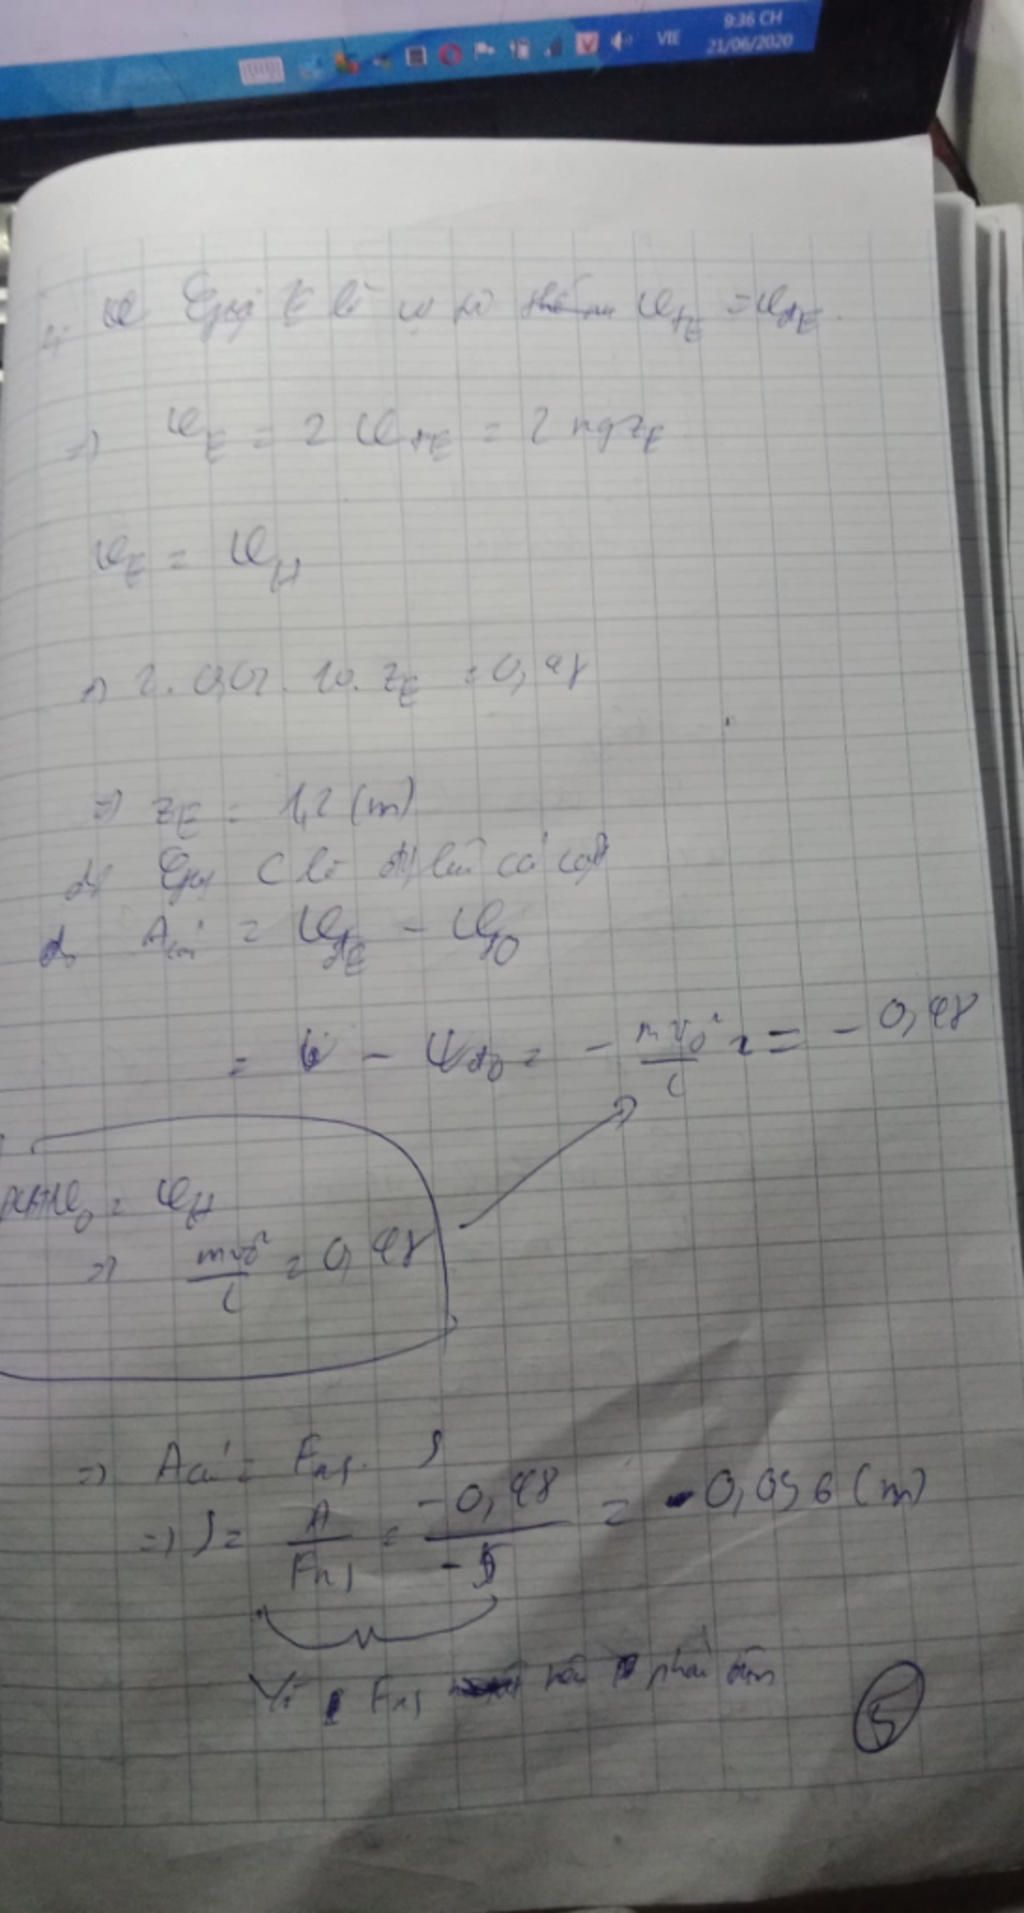 9:36 CH
VIE 21/06/2020
Gọi E là vị trí W_tE = W_đE
=> W_E = 2 W_tE = 2 mg z_E
W_E = W_H
=> 2. 0,02. 10. z_E = 0,48
=> z_E = 1,2 (m)
d, Gọi C là
d, A_cản = W_đE - W_đO
= 0 - W_đO = - mv_0² / 2 = - 0,48
W_O = W_H
=> mv_0² / 2 = 0,48
=> A_cản = F_ms. S
=> S = A / F_ms = -0,48 / -5 = 0,096 (m)
Vì F_ms nên phải âm
5